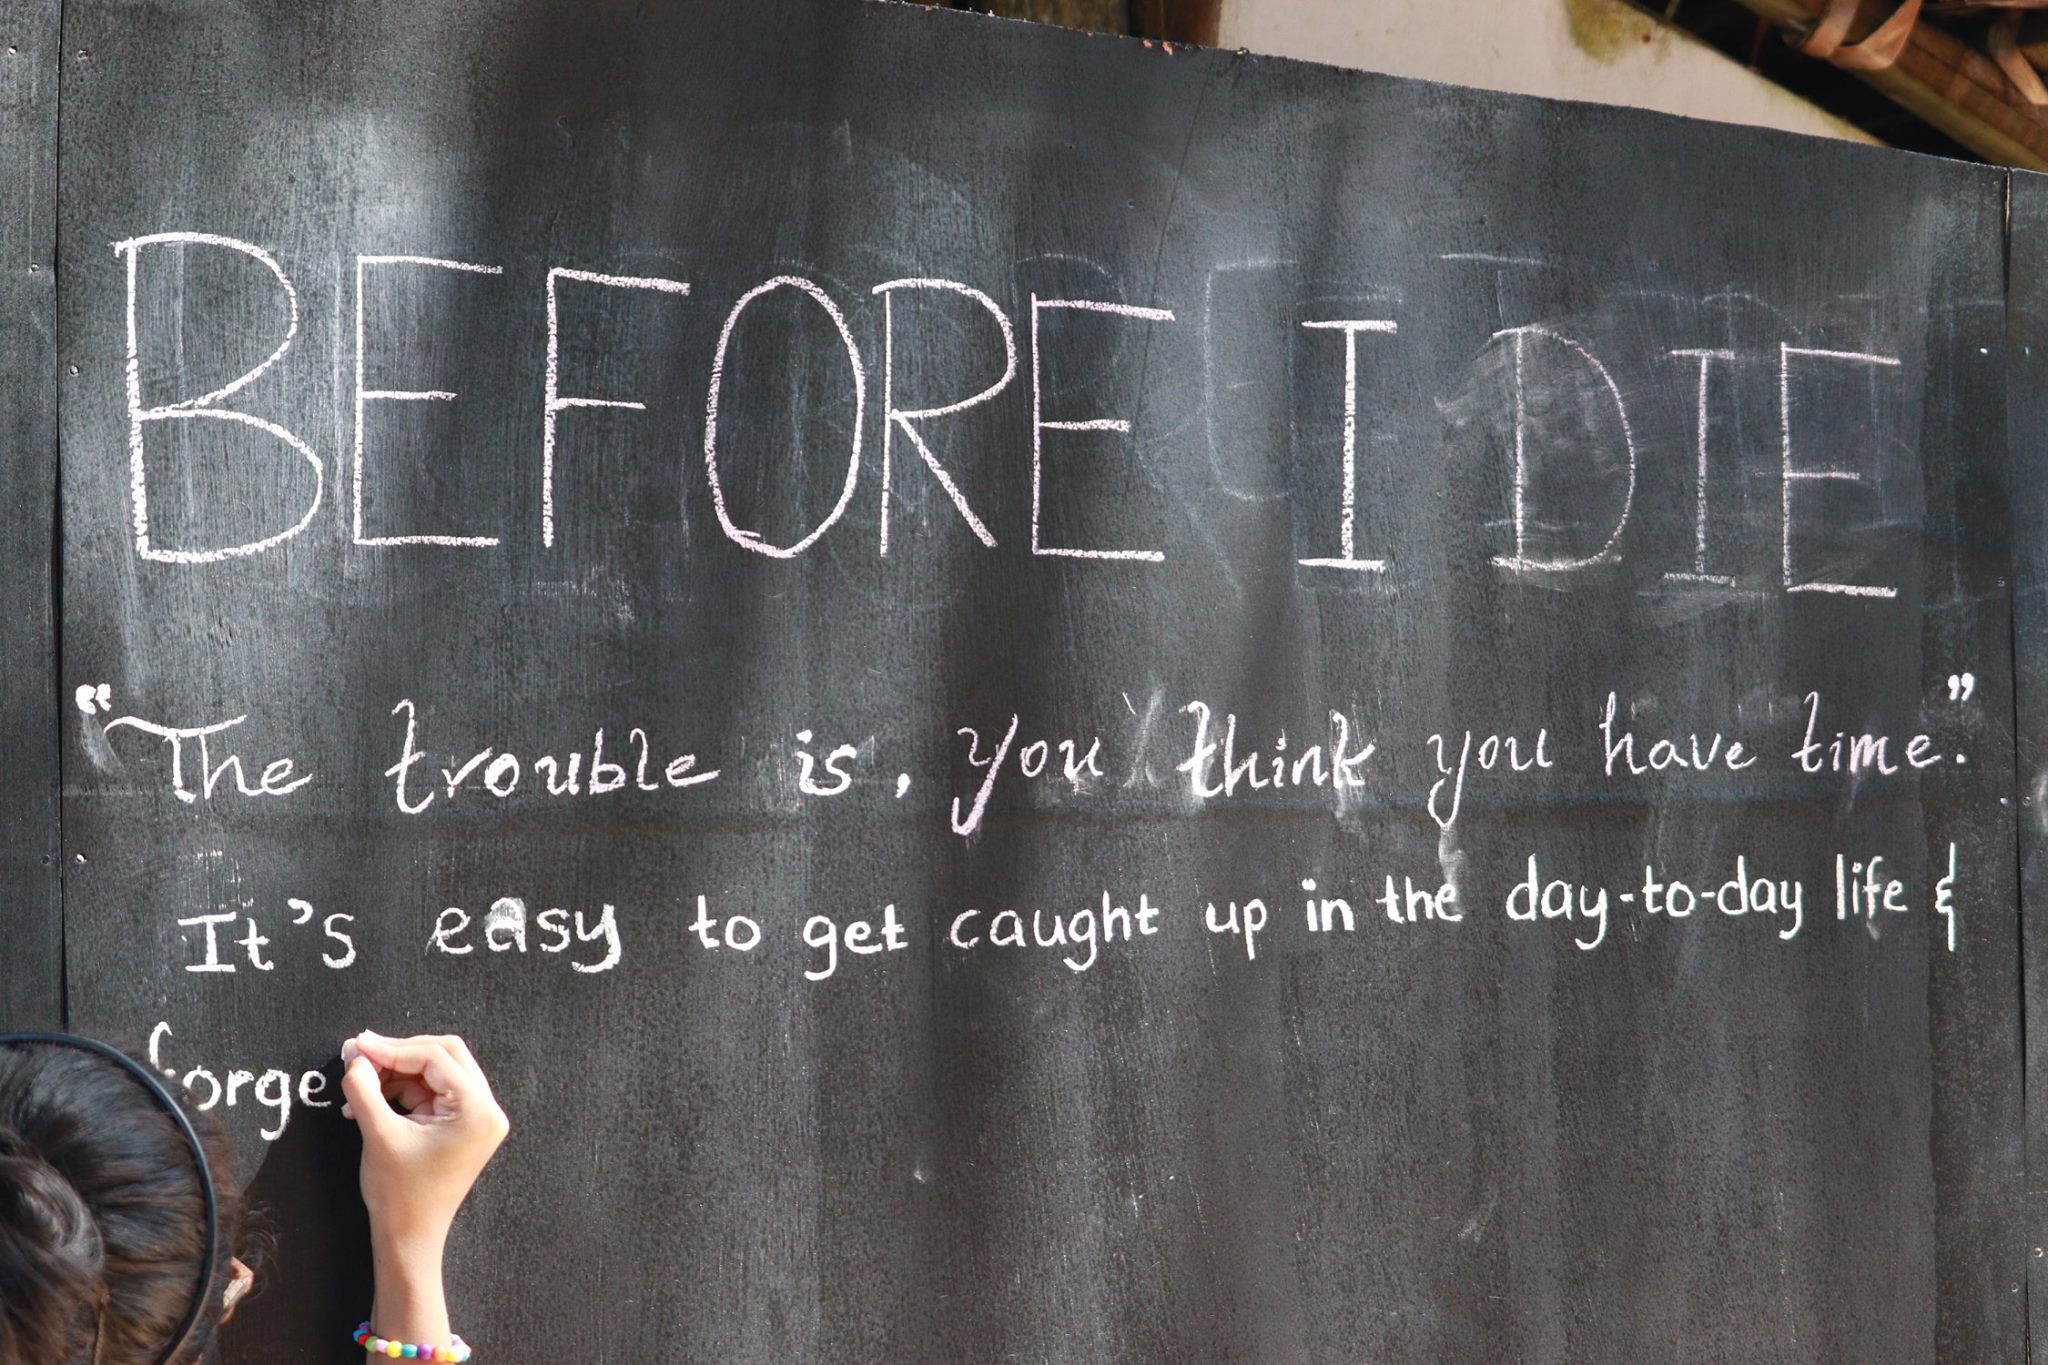 BEFORE I DIE
“The trouble is, you think you have time.”
It's easy to get caught up in the day-to-day life &
forge